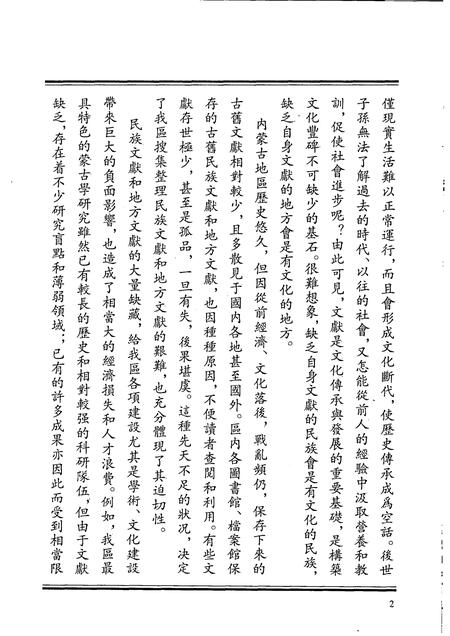 僅現實生活難以正常運行，而且會形成文化斷代，使歷史傳承成爲空話。後世
子孫無法了解過去的時代、以往的社會，又怎能從前人的經驗中汲取營養和教
訓，促使社會進步呢？由此可見，文獻是文化傳承與發展的重要基礎，是構築
文化豐碑不可缺少的基石。很難想象，缺乏自身文獻的民族會是有文化的民族，
缺乏自身文獻的地方會是有文化的地方。
内蒙古地區歷史悠久，但因從前經濟、文化落後，戰亂頻仍，保存下來的
古舊文獻相對較少，且多散見于國内各地甚至國外。區内各圖書館、檔案館保
存的古舊民族文獻和地方文獻，也因種種原因，不便讀者查閱和利用。有些文
獻存世極少，甚至是孤品，一旦有失，後果堪虞。這種先天不足的狀况，决定
了我區搜集整理民族文獻和地方文獻的艱難，也充分體現了其迫切性。
民族文獻和地方文獻的大量缺藏，給我區各項建設尤其是學術、文化建設
帶來巨大的負面影響，也造成了相當大的經濟損失和人才浪費。例如，我區最
具特色的蒙古學研究雖然已有較長的歷史和相對較强的科研隊伍，但由于文獻
缺乏，存在着不少研究盲點和薄弱領域；已有的許多成果亦因此而受到相當限
2